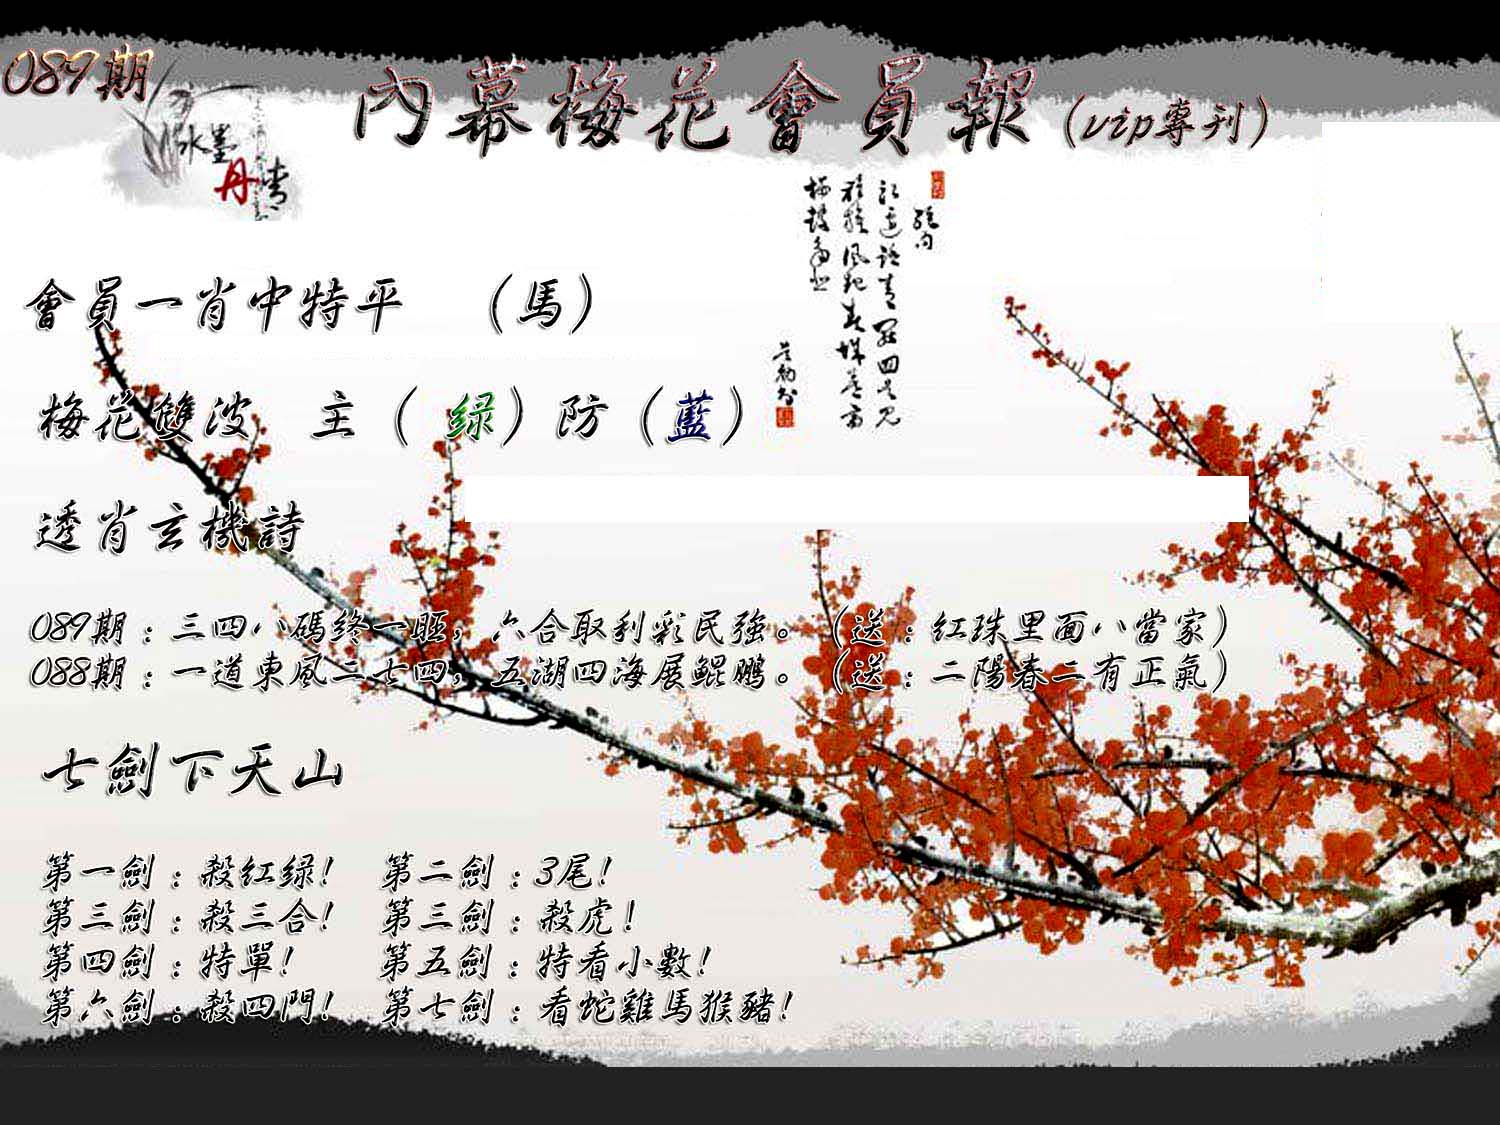 089期
內幕梅花會員報（vip專刊）
水墨
丹青
會員一肖中特平 （馬）
梅花雙波 主（绿）防（藍）
透肖玄機詩
089期：三四八碼終一眶，六合取利彩民強。（送：红珠里面八當家）
088期：一道東風二七四，五湖四海展鯤鵬。（送：二陽春二有正氣）
七劍下天山
第一劍：殺红绿! 第二劍：3尾!
第三劍：殺三合! 第三劍：殺虎!
第四劍：特單! 第五劍：特看小數!
第六劍：殺四門! 第七劍：看蛇雞馬猴豬!